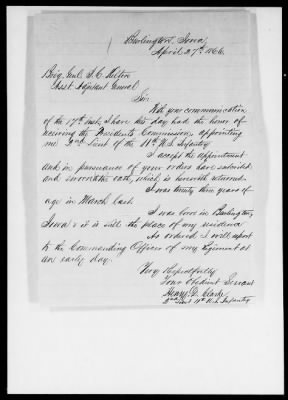 Burlington, Iowa,
April 27th 1866.
Brig. Genl. J. C. Kelton
Asst. Adjutant General
Sir:
With your communication
of the 17th inst., I have this day had the honor of
receiving the Presidents Commission, appointing
me 2nd Lieut of the 11th U.S. Infantry.
I accept the appointment
and in pursuance of your orders have
and oath, which is herewith returned.
I was twenty three years of
age in March last.
I was born in Burlington
Iowa & it is still the place of my residence
As ordered I will report
to the Commanding Officer of my Regiment at
an early day.
Very Respectfully
Your Obedient Servant
Henry
2nd Lieut 11th U.S. Infantry